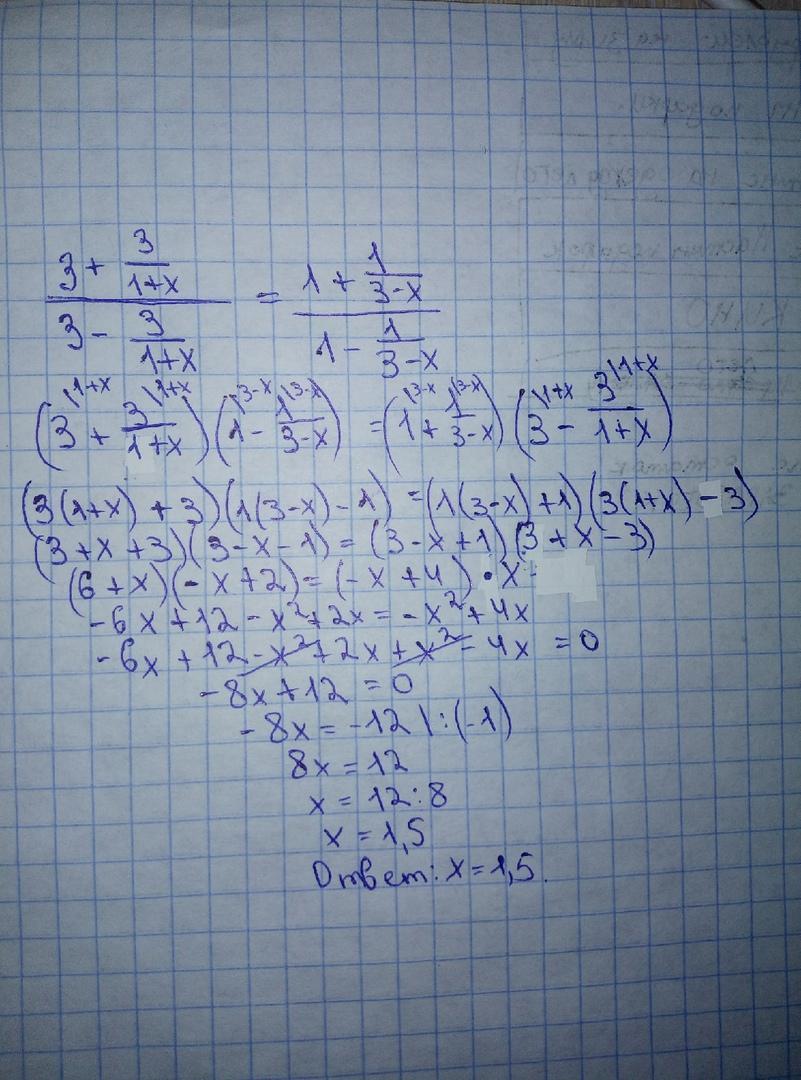 (3 + 3/(1+x)) / (3 - 3/(1+x)) = (1 + 1/(3-x)) / (1 - 1/(3-x))
(3^{\1+x} + 3^{\1+x}/(1+x))(1^{\3-x} - 1^{\3-x}/(3-x)) = (1^{\3-x} + 1^{\3-x}/(3-x))(3^{\1+x} - 3^{\1+x}/(1+x))
(3(1+x) + 3)(1(3-x) - 1) = (1(3-x) + 1)(3(1+x) - 3)
(3 + x + 3)(3 - x - 1) = (3 - x + 1)(3 + x - 3)
(6 + x)(-x + 2) = (-x + 4) · x
-6x + 12 - x² + 2x = -x² + 4x
-6x + 12 - x² + 2x + x² - 4x = 0
-8x + 12 = 0
-8x = -12 | :(-1)
8x = 12
x = 12 : 8
x = 1,5
Ответ: x = 1,5.